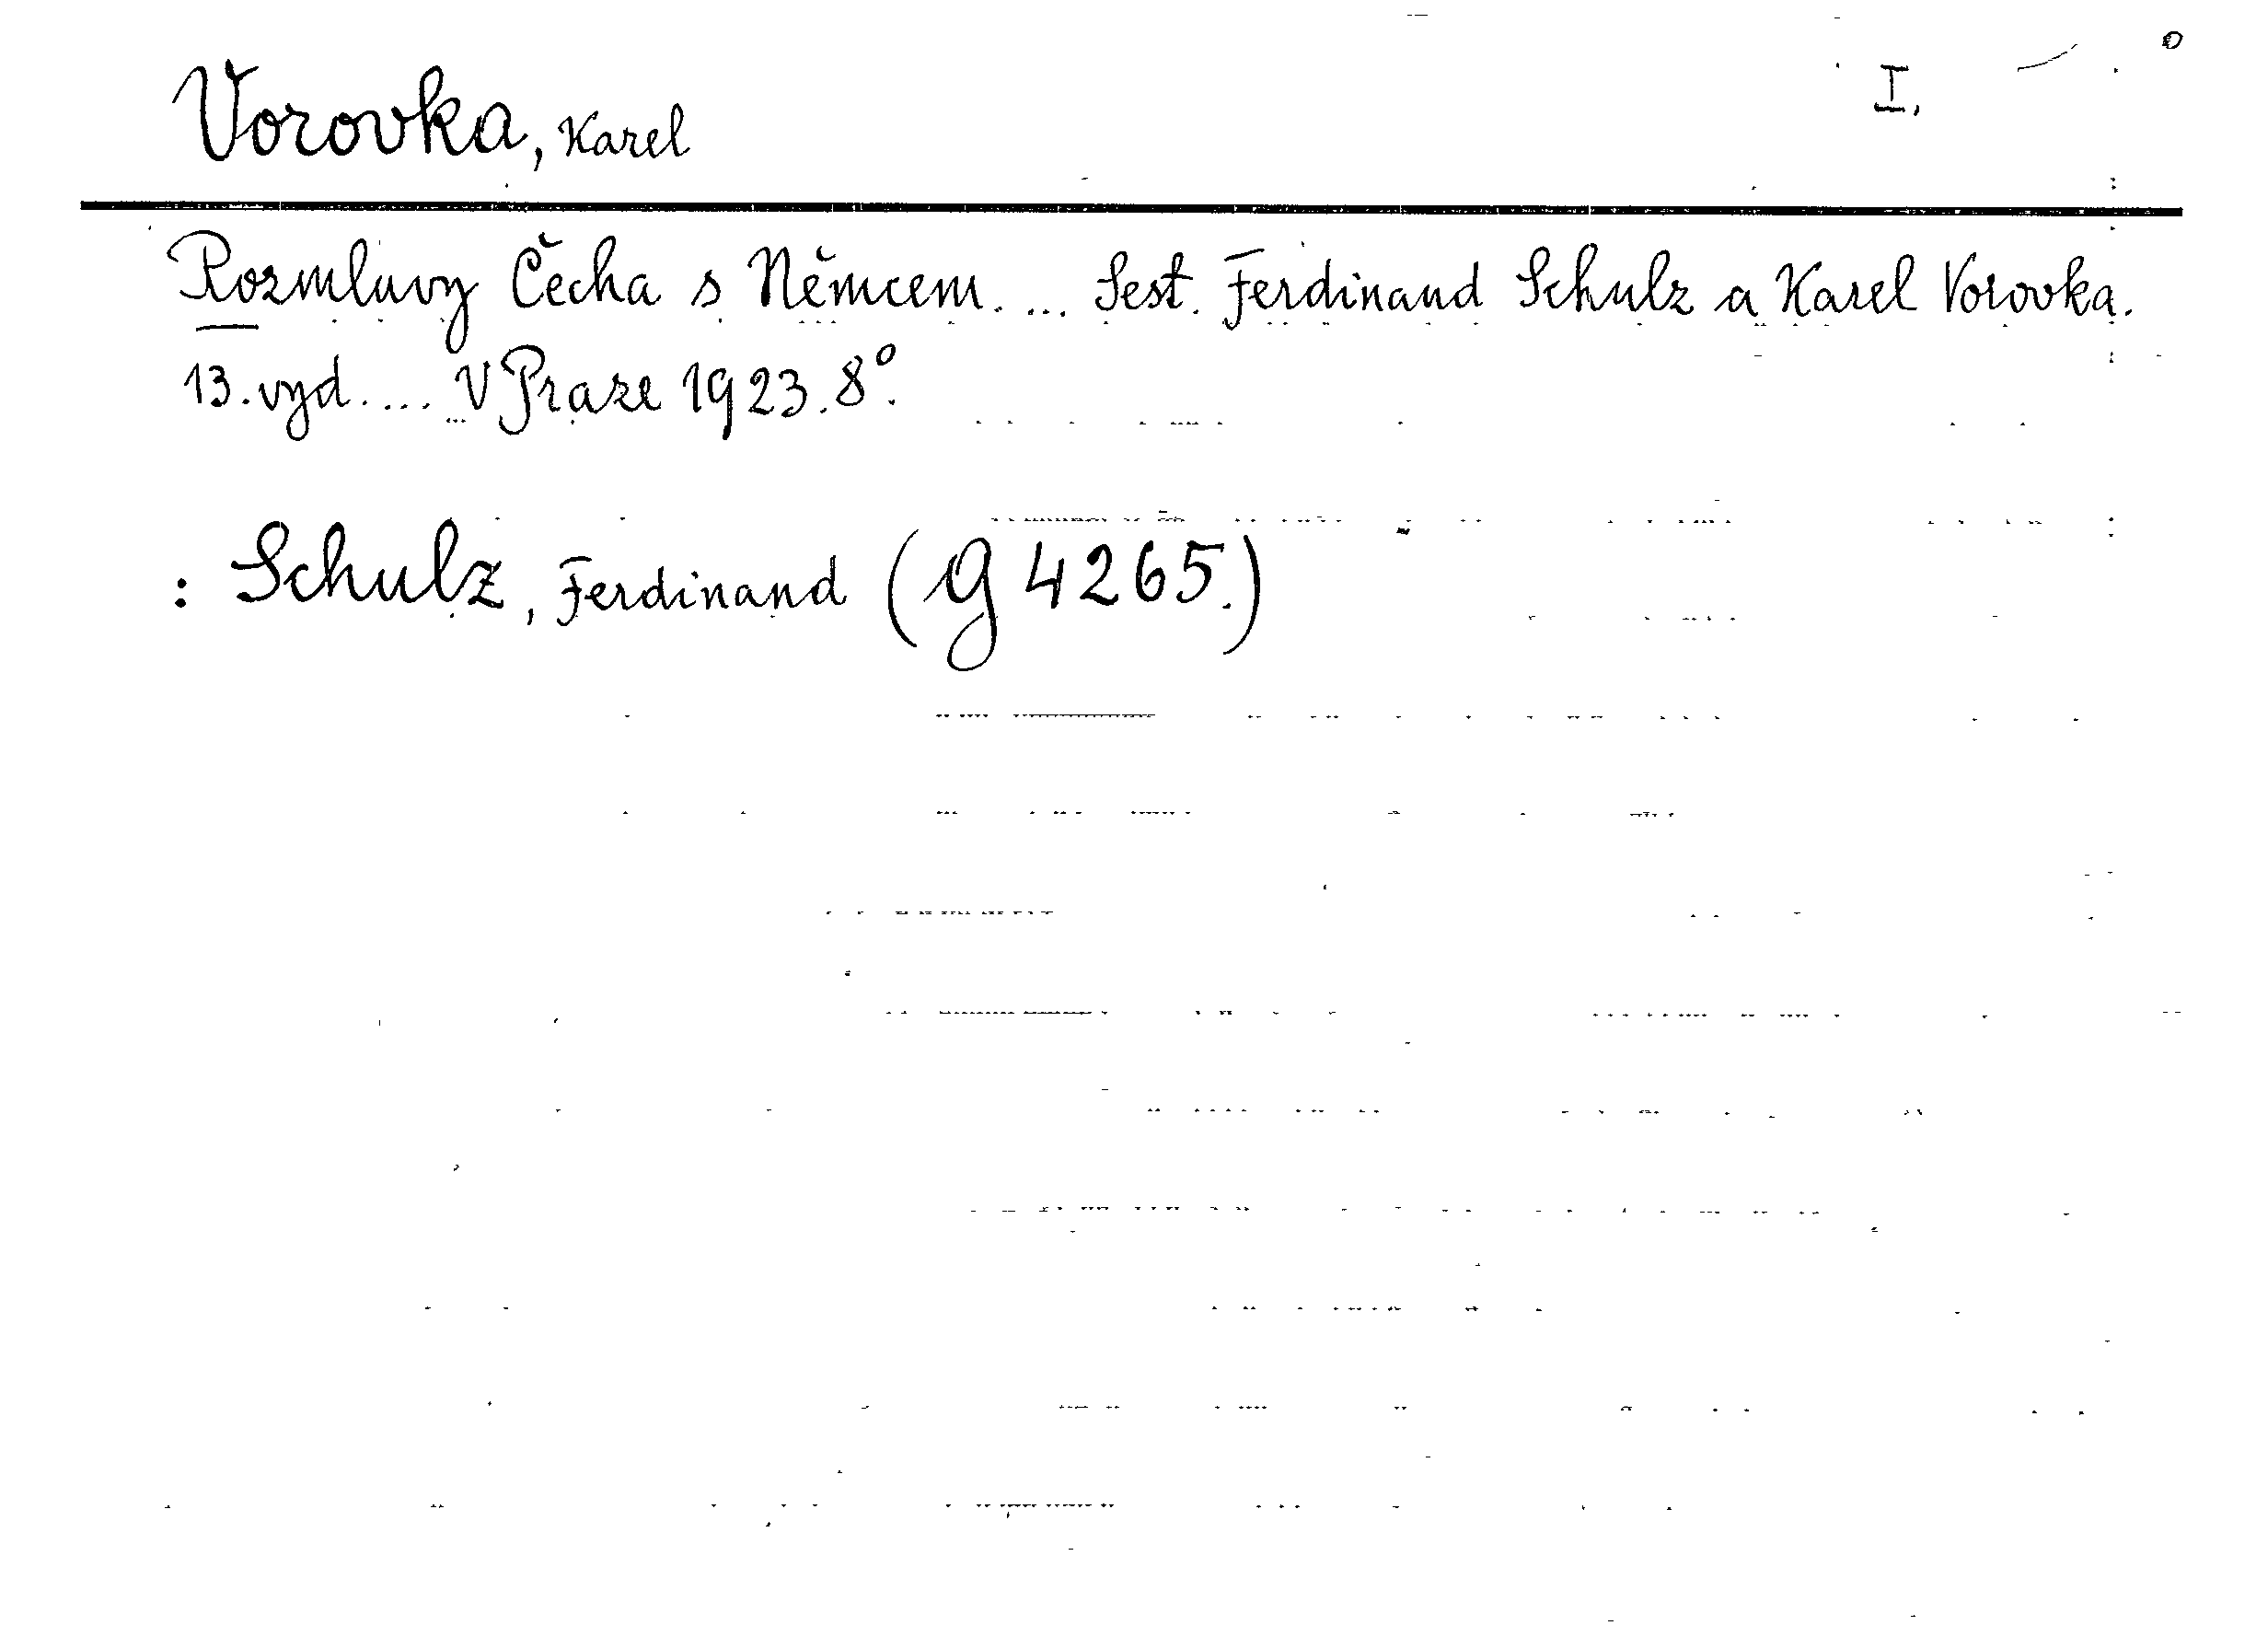 Vorovka, Karel I,
Rozmluvy Čecha s Němcem. ... Sest. Ferdinand Schulz a Karel Vorovka.
13. vyd. ... V Praze 1923. 8°.
: Schulz, Ferdinand (g 4265.)